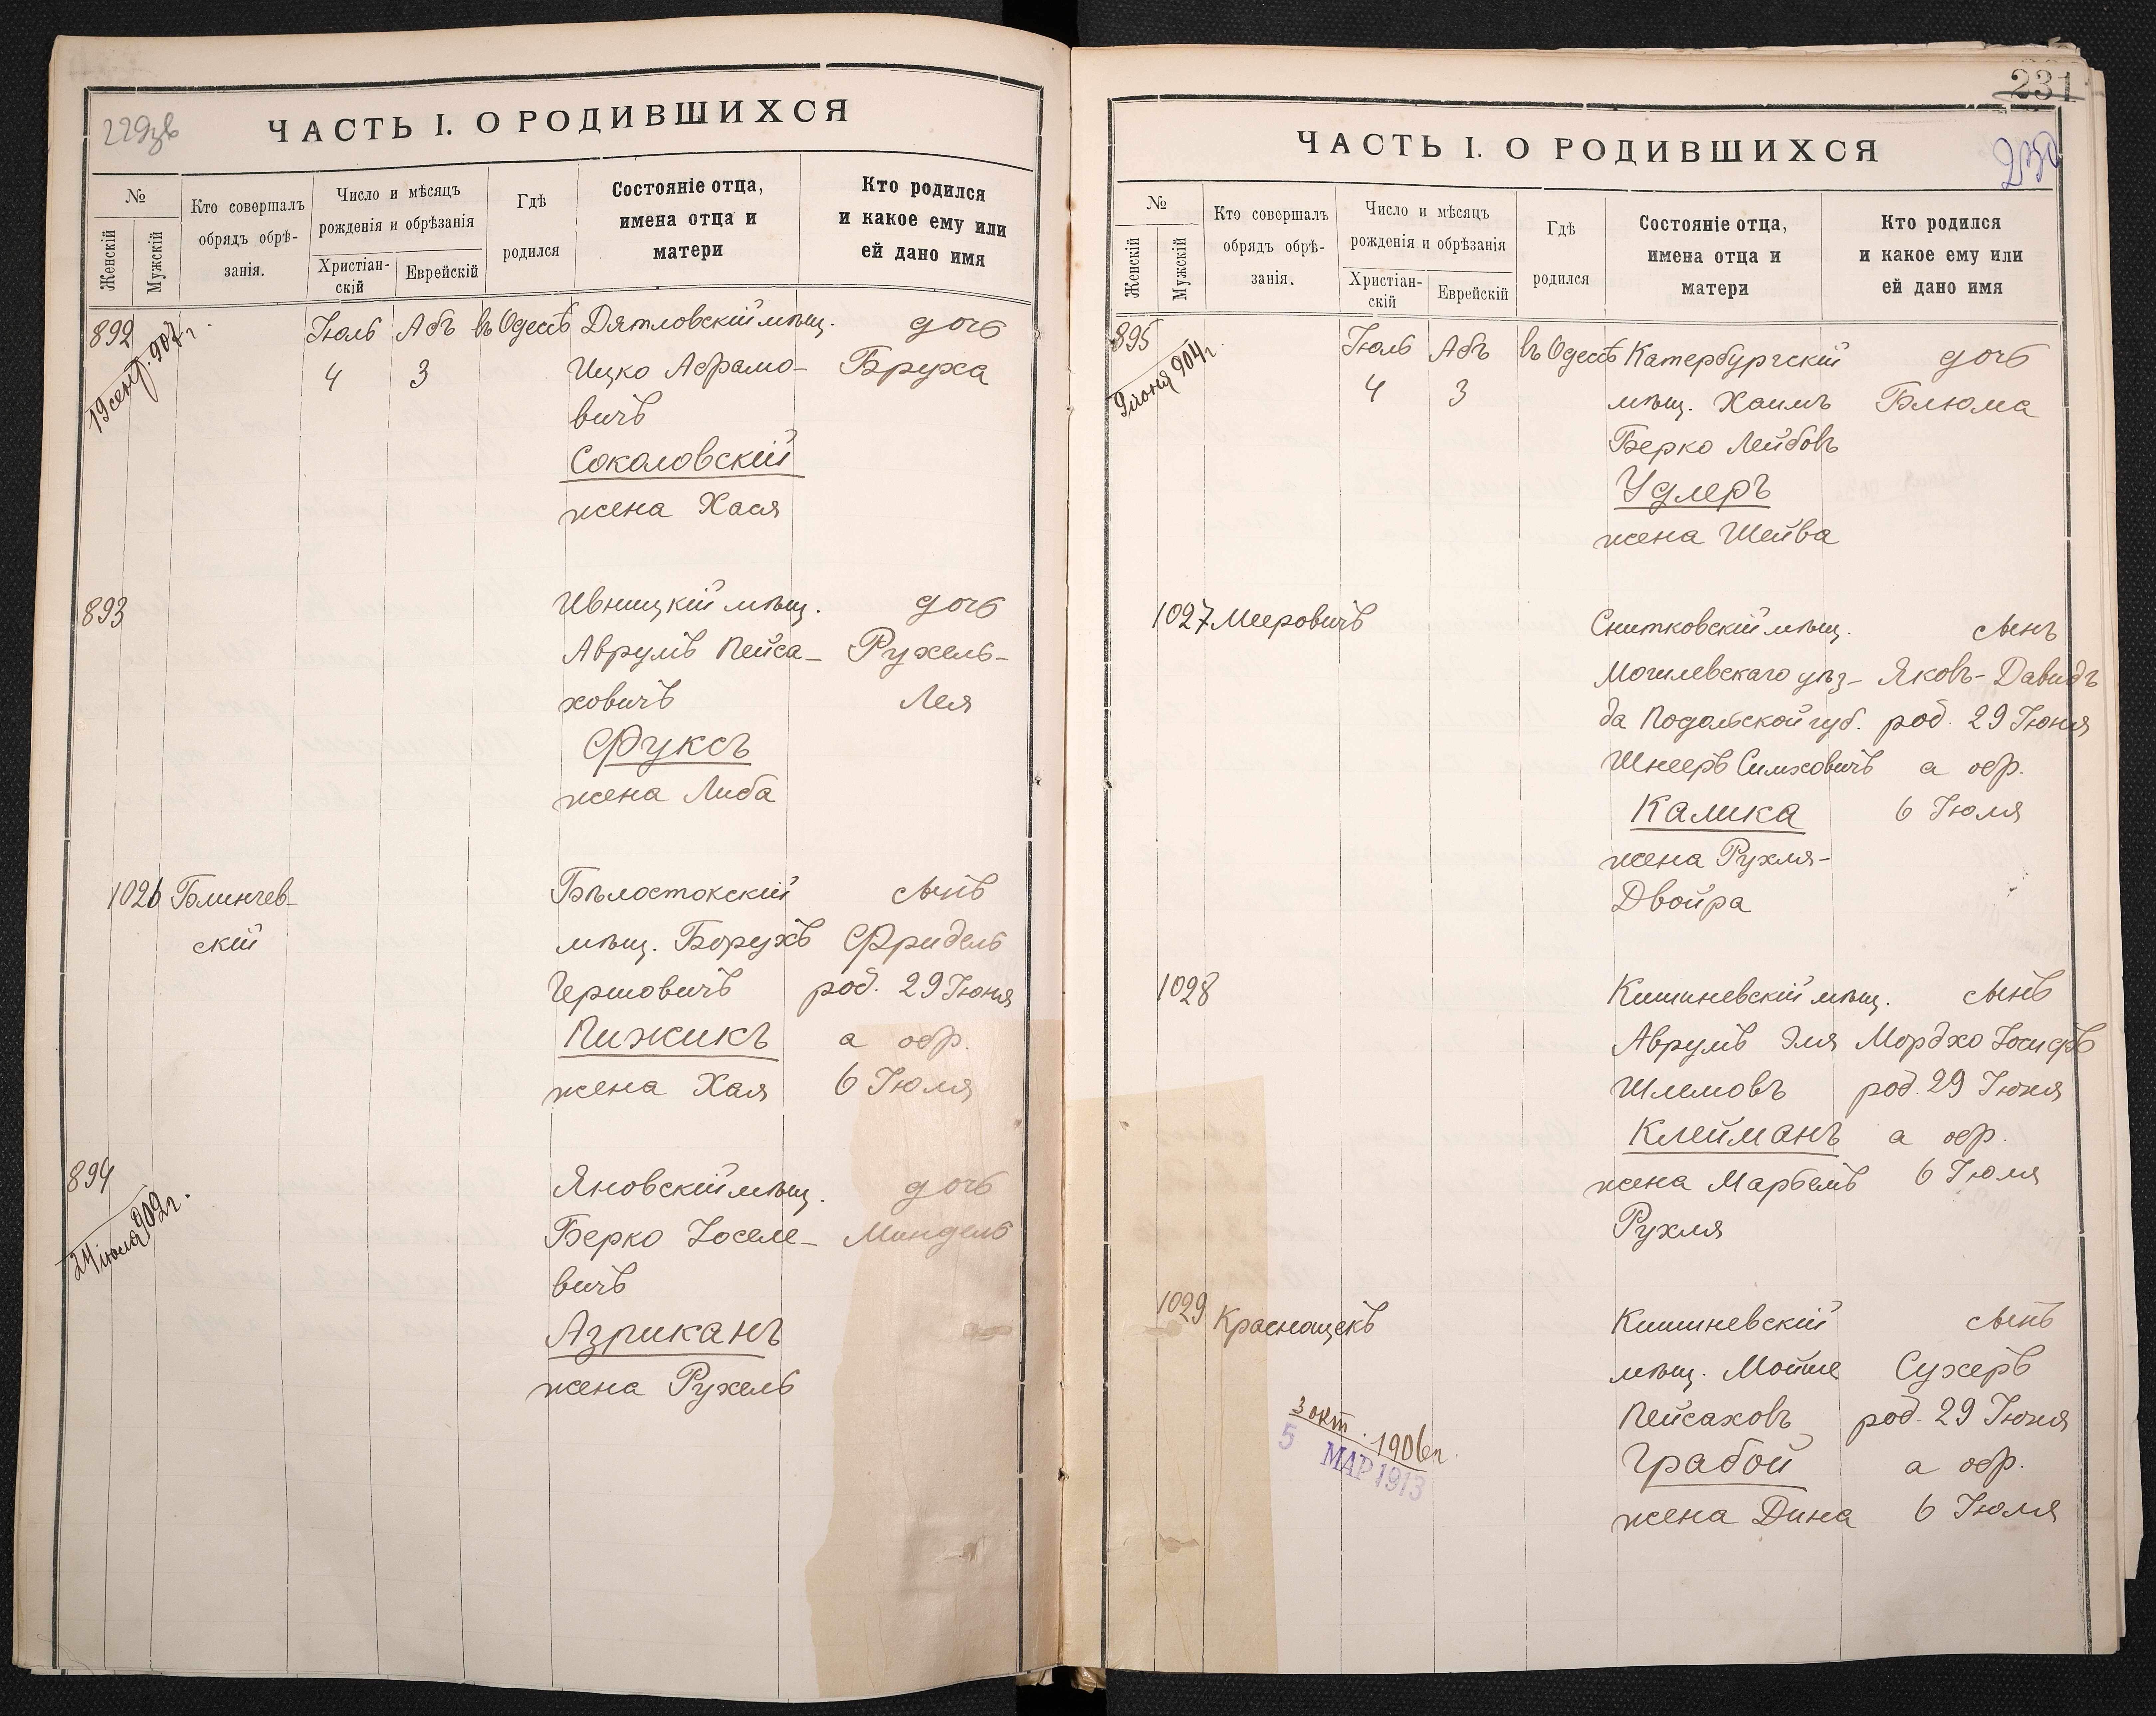 229зв
ЧАСТЬ I. О РОДИВШИХСЯ
№
Женскій
Мужскій
Кто совершалъ
обрядъ обрѣ-
занія.
Число и мѣсяцъ
рожденія и обрѣзанія
Христіан-
скій
Еврейскій
Гдѣ
родился
Состояніе отца,
имена отца и
матери
Кто родился
и какое ему или
ей дано имя
892 Іюль Абъ въ Одессѣ Дятловскій мѣщ. дочь
19 сент. 907 г.
4 3 Ицко Абрамо- Бруха
вичъ
Соколовскій
жена Хася
893 Ивницкій мѣщ. дочь
Аврумъ Пейса- Рухель-
ховичъ Лея
Фуксъ
жена Либа
1026 Блинчев- Бѣлостокскій сынъ
скій мѣщ. Борухъ Фридель
Гершовичъ род. 29 Іюня
Пижикъ а обр.
жена Хая 6 Іюля
894 Яновскій мѣщ. дочь
24 іюля 902 г.
Берко Іоселе- Миндель
вичъ
Азриканъ
жена Рухель
231
230
ЧАСТЬ I. О РОДИВШИХСЯ
№
Женскій
Мужскій
Кто совершалъ
обрядъ обрѣ-
занія.
Число и мѣсяцъ
рожденія и обрѣзанія
Христіан-
скій
Еврейскій
Гдѣ
родился
Состояніе отца,
имена отца и
матери
Кто родился
и какое ему или
ей дано имя
895 Іюль Абъ въ Одессѣ Катербургскій дочь
9 іюня 904 г.
4 3 мѣщ. Хаимъ Блюма
Берко Лейбовъ
Удлеръ
жена Шейва
1027 Мееровичъ Снитковскій мѣщ. сынъ
Могилевскаго уѣз- Яковъ-Давидъ
да Подольской губ. род. 29 Іюня
Шнееръ Симховичъ а обр.
Калика 6 Іюля
жена Рухля-
Двойра
1028 Кишиневскій мѣщ. сынъ
Аврумъ Эля Мордхо Іосифъ
Шлемовъ род. 29 Іюня
Клейманъ а обр.
жена Марбемъ 6 Іюля
Рухля
1029 Краснощекъ Кишиневскій сынъ
мѣщ. Мойше Сухеръ
Пейсаховъ род. 29 Іюня
3 окт. 1906 г.
5 МАР 1913
Грабой а обр.
жена Дина 6 Іюля